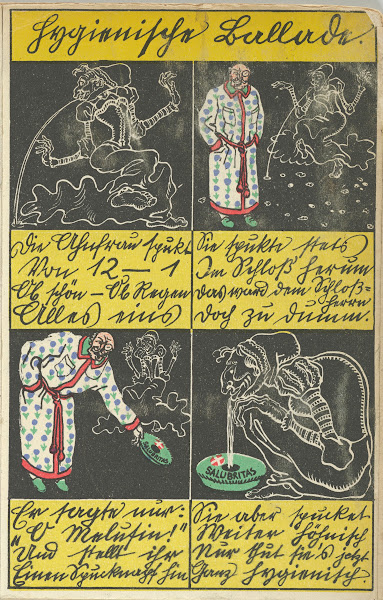 Hygienische Ballade.
Die Ahnfrau spukt
Von 12 — 1
Ob schön — Ob Regen
Alles eins
Sie spukte stets
Im Schloß herum
Das ward dem Schloß-
herrn
Doch zu dumm.
SALUBRITAS
SALUBRITAS
Er sagte nur:
"O Melusin!"
Und stellt ihr
Einen Spucknapf hin
Sie aber spucket
Weiter höhnisch
Nur thut sie's jetzt
Ganz hygienisch.